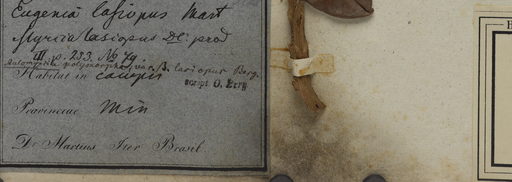 Eugenia lasiopus Mart
Myrcia lasiopus DC. prod
III p. 253. № 79
Automyrcia polymorpha, var. β. lasiopus Berg.
Habitat in campis
script. O. Berg
Provinciae Min
Dr Martius Iter Brasil